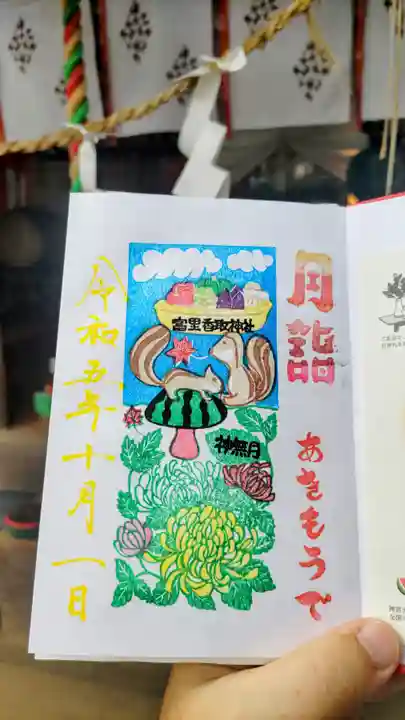 月詣
あきもうで
宮里香取神社
神無月
令和五年十月一日